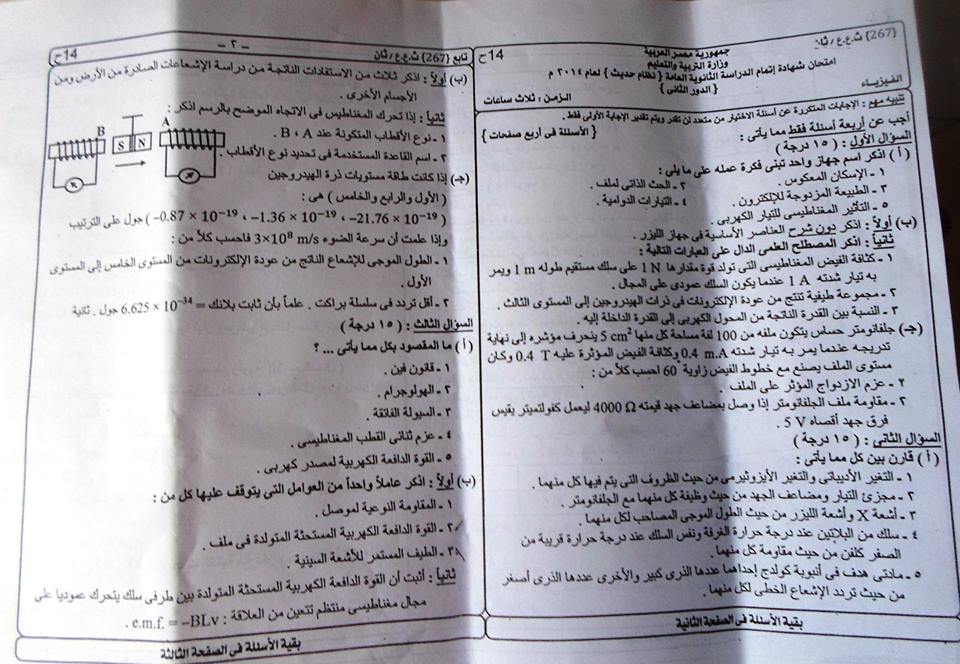 {267} ث.ع.ع / ثان
14ح
جمهورية مصر العربية
وزارة التربية والتعليم
امتحان شهادة إتمام الدراسة الثانوية العامة { نظام حديث } لعام ٢٠١٤ م
{ الدور الثانى }
الفيزياء
الـزمـن : ثلاث ساعات
تنبيه مهم : الإجابات المتكررة عن أسئلة الاختيار من متعدد لن تقدر ويتم تقدير الإجابة الأولى فقط .
أجب عن أربعة أسئلة فقط مما يأتى :
{ الأسئلة فى أربع صفحات }
السؤال الأول : ( ١٥ درجة )
( أ ) اذكر اسم جهاز واحد تبنى فكرة عمله على ما يلى :
١ - الإسكان المعكوس .
٢ - الحث الذاتى لملف .
٣ - الطبيعة المزدوجة للإلكترون .
٤ - التيارات الدوامية .
٥ - التأثير المغناطيسى للتيار الكهربى .
(ب) أولاً : اذكر دون شرح العناصر الأساسية فى جهاز الليزر .
ثانياً : اذكر المصطلح العلمى الدال على العبارات التالية :
١ - كثافة الفيض المغناطيسى التى تولد قوة مقدارها 1 N على سلك مستقيم طوله 1 m ويمر
به تيار شدته 1 A عندما يكون السلك عمودى على المجال .
٢ - مجموعة طيفية تنتج من عودة الإلكترونات فى ذرات الهيدروجين إلى المستوى الثالث .
٣ - النسبة بين القدرة الناتجة من المحول الكهربى إلى القدرة الداخلة إليه .
(جـ) جلفانومتر حساس يتكون ملفه من 100 لفة مساحة كل منها 5 cm² ينحرف مؤشره إلى نهاية
تدريجه عندما يمر به تيار شدته 0.4 m.A وكثافة الفيض المؤثرة عليه 0.4 T وكان
مستوى الملف يصنع مع خطوط الفيض زاوية 60° احسب كلاً من :
٢ - عزم الازدواج المؤثر على الملف .
٢ - مقاومة ملف الجلفانومتر إذا وصل بمضاعف جهد قيمته 4000 Ω ليعمل كفولتميتر يقيس
فرق جهد أقصاه 5 V .
السؤال الثانى : ( ١٥ درجة )
( أ ) قارن بين كل مما يأتى :
١ - التغير الأديباتى والتغير الأيزوثيرمى من حيث الظروف التى يتم فيها كل منهما .
٢ - مجزئ التيار ومضاعف الجهد من حيث وظيفة كل منهما مع الجلفانومتر .
٣ - أشعة X وأشعة الليزر من حيث الطول الموجى المصاحب لكل منهما .
٤ - سلك من البلاتين عند درجة حرارة الغرفة ونفس السلك عند درجة حرارة قريبة من
الصفر كلفن من حيث مقاومة كل منهما .
٥ - مادتى هدف فى أنبوبة كولدج إحداهما عددها الذرى كبير والأخرى عددها الذرى أصغر
من حيث تردد الإشعاع الخطى لكل منهما .
بقية الأسئلة فى الصفحة الثانية
14ح
- ٢ -
تابع {267} ث.ع.ع / ثان
(ب) أولاً : اذكر ثلاث من الاستفادات الناتجة من دراسة الإشعاعات الصادرة من الأرض ومن
الأجسام الأخرى .
ثانياً : إذا تحرك المغناطيس فى الاتجاه الموضح بالرسم اذكر :
١ - نوع الأقطاب المتكونة عند B ، A .
٢ - اسم القاعدة المستخدمة فى تحديد نوع الأقطاب .
B
A
S N
(جـ) إذا كانت طاقة مستويات ذرة الهيدروجين
( الأول والرابع والخامس ) هى :
( −21.76 × 10⁻¹⁹ ، −1.36 × 10⁻¹⁹ ، −0.87 × 10⁻¹⁹ ) جول على الترتيب
وإذا علمت أن سرعة الضوء 3×10⁸ m/s فاحسب كلاً من :
١ - الطول الموجى للإشعاع الناتج من عودة الإلكترونات من المستوى الخامس إلى المستوى
الأول .
٢ - أقل تردد فى سلسلة براكت . علماً بأن ثابت بلانك = 6.625 × 10⁻³⁴ جول . ثانية
السؤال الثالث : ( ١٥ درجة )
( أ ) ما المقصود بكل مما يأتى ... ؟
١ - قانون فين .
٢ - الهولوجرام .
٣ - السيولة الفائقة .
٤ - عزم ثنائى القطب المغناطيسى .
٥ - القوة الدافعة الكهربية لمصدر كهربى .
(ب) أولاً : اذكر عاملاً واحداً من العوامل التى يتوقف عليها كل من :
١ - المقاومة النوعية لموصل .
٢ - القوة الدافعة الكهربية المستحثة المتولدة فى ملف .
٣ - الطيف المستمر للأشعة السينية .
ثانياً : أثبت أن القوة الدافعة الكهربية المستحثة المتولدة بين طرفى سلك يتحرك عمودياً على
مجال مغناطيسى منتظم تتعين من العلاقة : e.m.f. = −BLv .
بقية الأسئلة فى الصفحة الثالثة